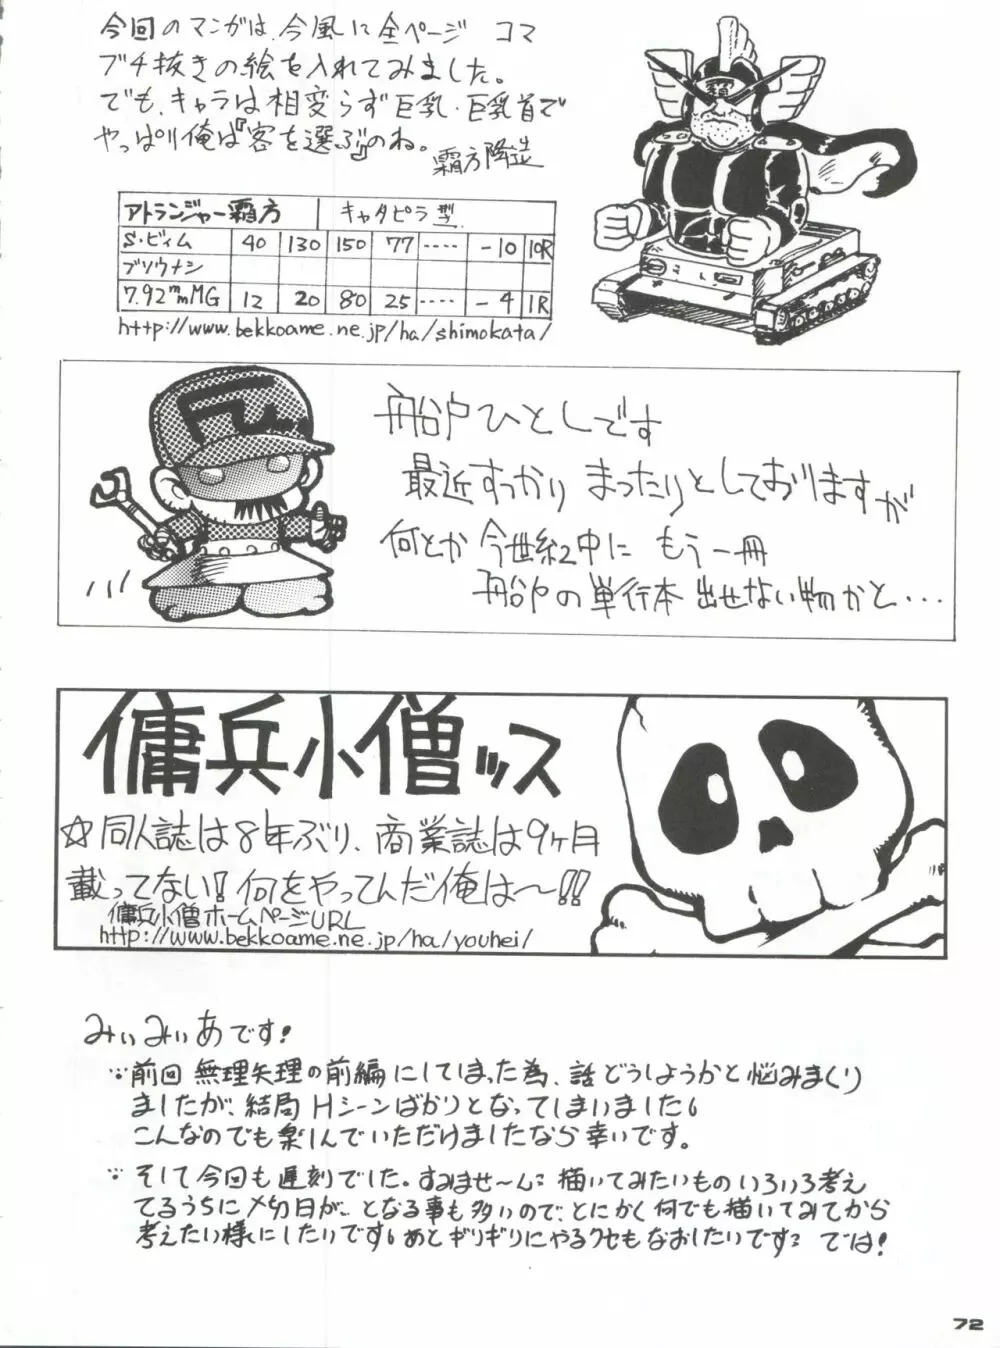 今回のマンガは、今風に全ページ コマ
ブチ抜きの絵を入れてみました。
でも、キャラは相変らず巨乳・巨乳首で
やっぱり俺は『客を選ぶ』のね。
霜方降造
アトランジャー霜方 キャタピラ型
S・ビィム 40 130 150 77 ‥‥ -10 10R
ブソウナシ
7.92mmMG 12 20 80 25 ‥‥ -4 1R
http://www.bekkoame.ne.jp/ha/shimokata/
船戸ひとしです
最近すっかり まったりとしておりますが
何とか 今世紀中に もう一冊
船戸の単行本 出せない物かと・・・
傭兵小僧ッス
☆同人誌は8年ぶり、商業誌は9ヶ月
載ってない!何をやってんだ俺は〜!!
傭兵小僧ホームページURL
http://www.bekkoame.ne.jp/ha/youhei/
みぃみぃあです!
前回 無理矢理の前編にしてしまった為、話どうしようかと悩みまくり
ましたが、結局Hシーンばかりとなってしまいました。
こんなのでも楽しんでいただけましたなら幸いです。
そして今回も遅刻でした。すみませ〜ん 描いてみたいものいろいろ考え
てるうちに〆切日が、となる事も多いので、とにかく何でも描いてみてから
考えたい様にしたいです。あとギリギリにやるクセもなおしたいです では!
72